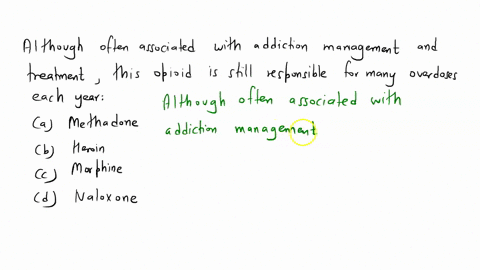 Although often associated with addiction management and
treatment, this opioid is still responsible for many overdoses
each year:
(a) Methadone
(b) Heroin
(c) Morphine
(d) Naloxone
Although often associated with
addiction management